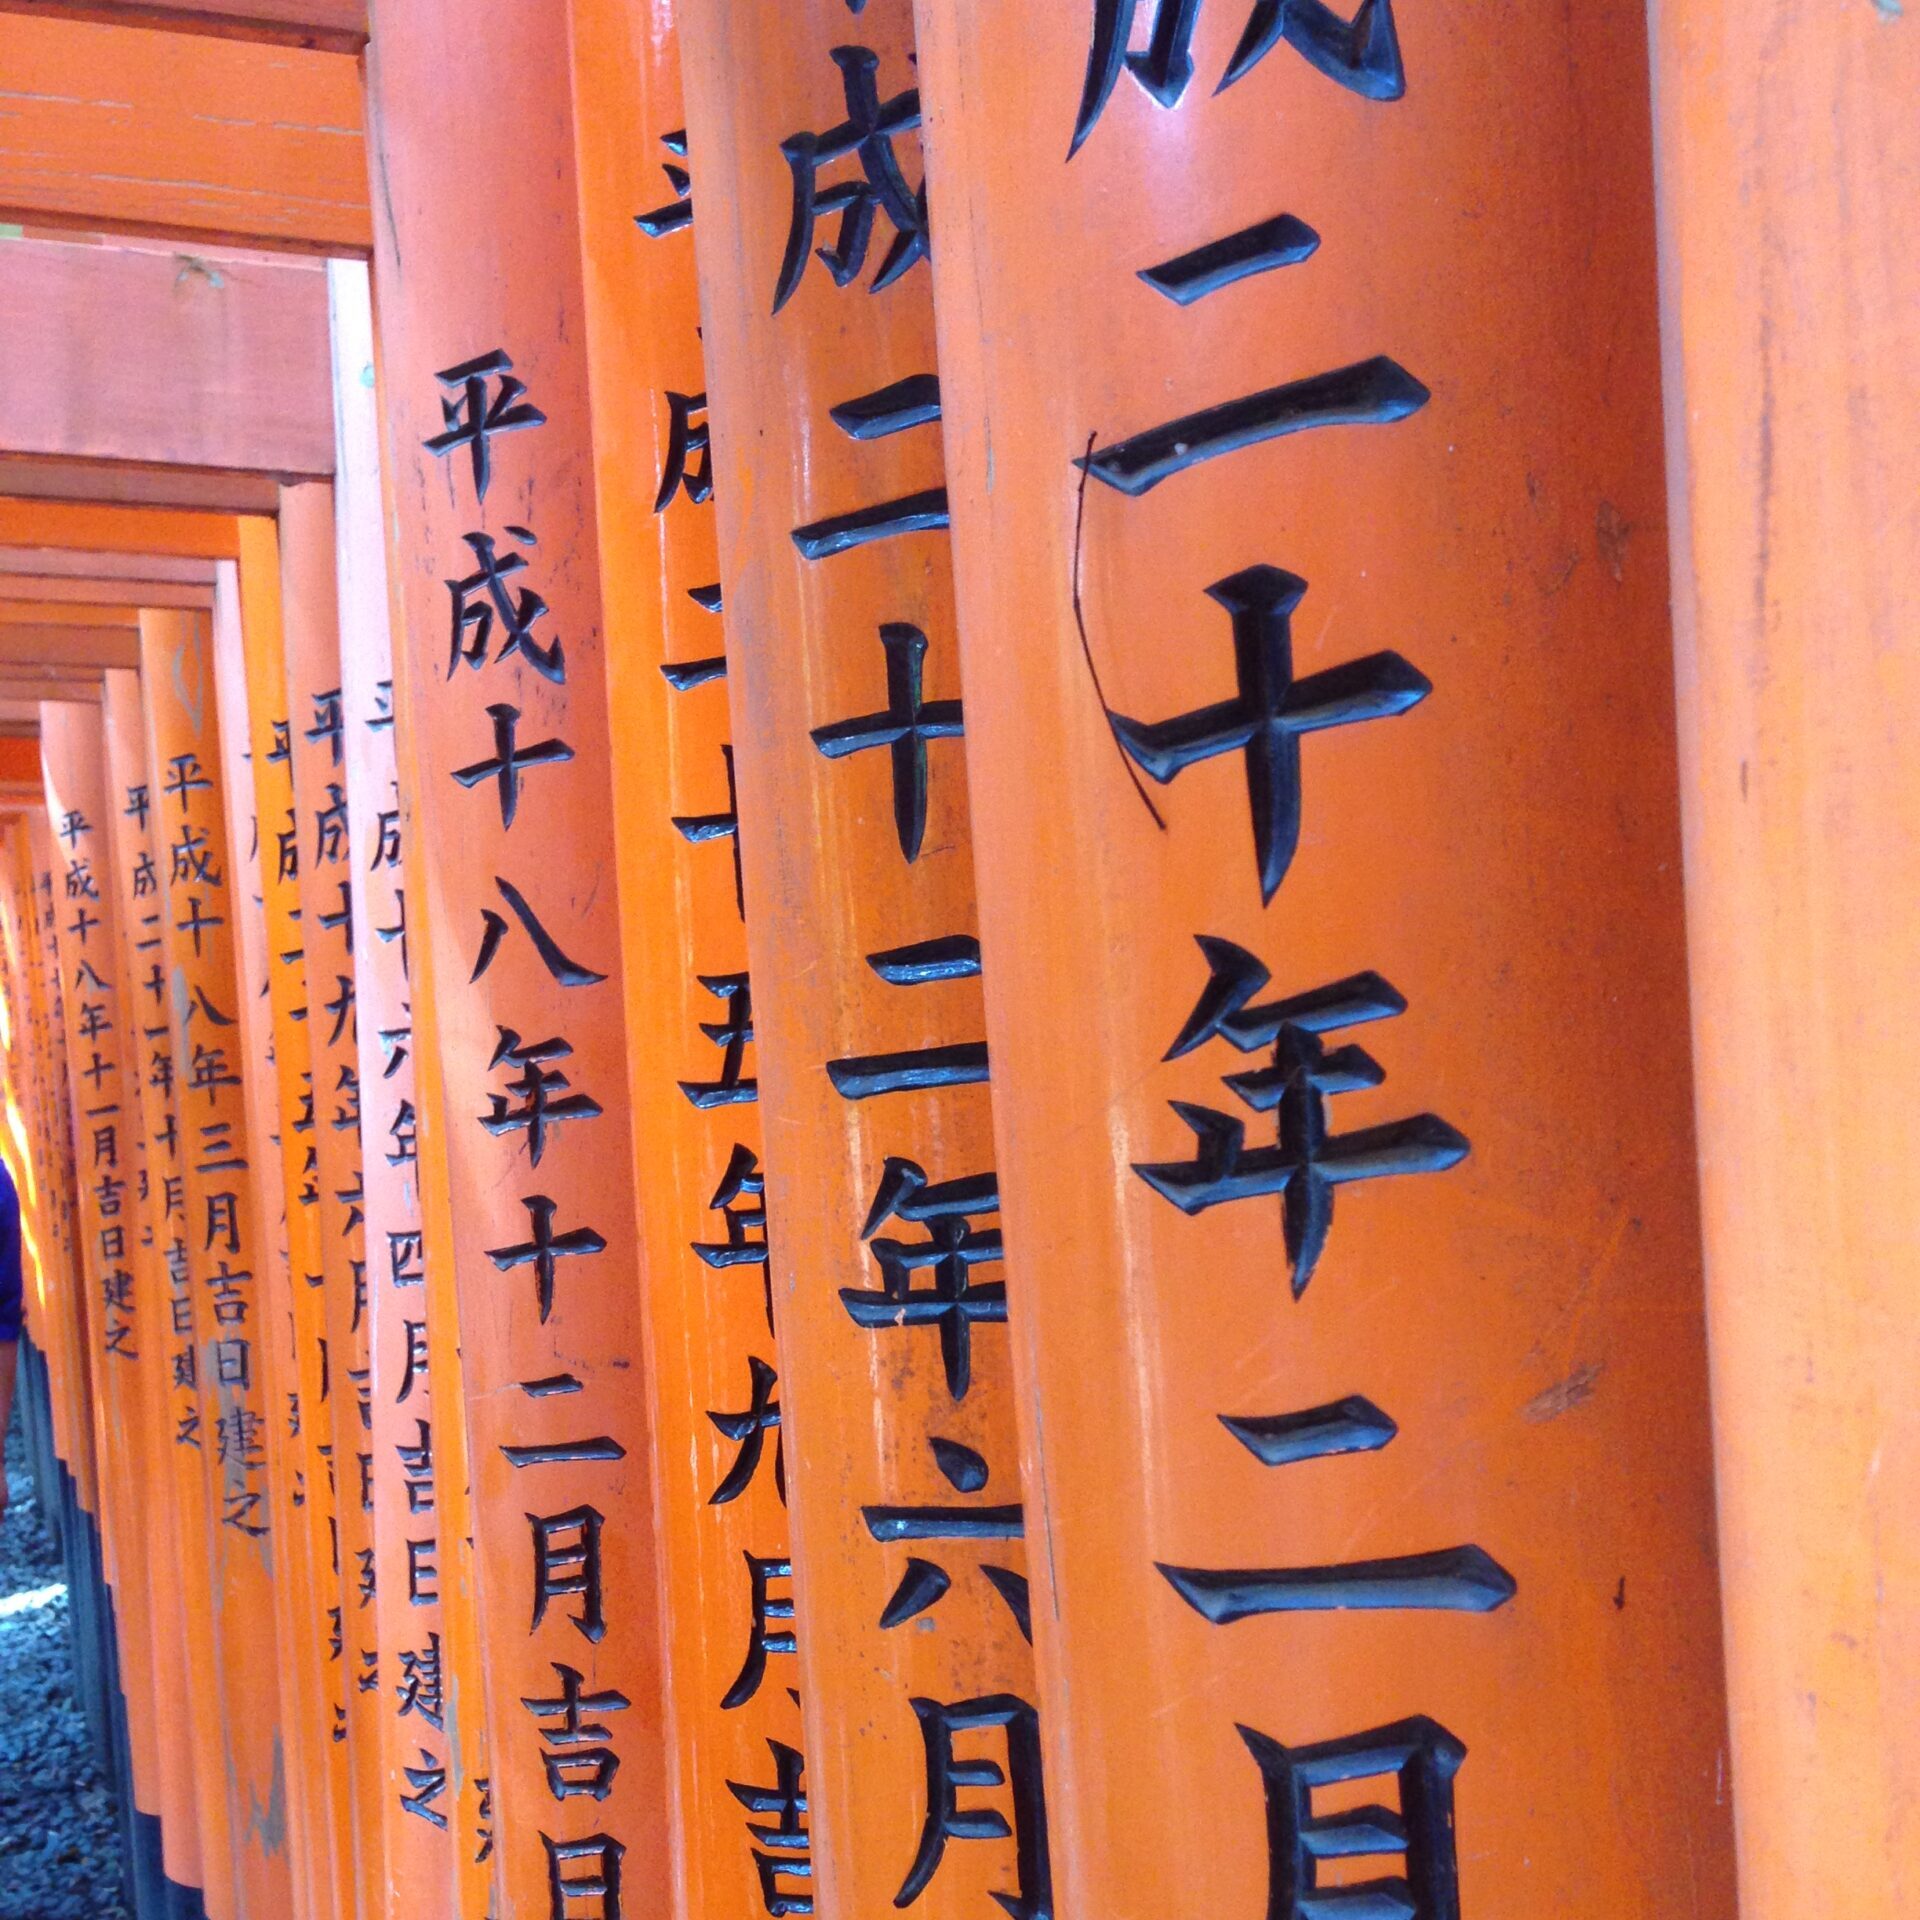 成二十年二月
成二十二年六月
平成二十五年九月吉
平成十八年十二月吉日
平成十六年四月吉日建之
平成十九年六月吉日建之
平成二十五年
平成十八年三月吉日建之
平成二十一年十月吉日建之
平成十八年十一月吉日建之